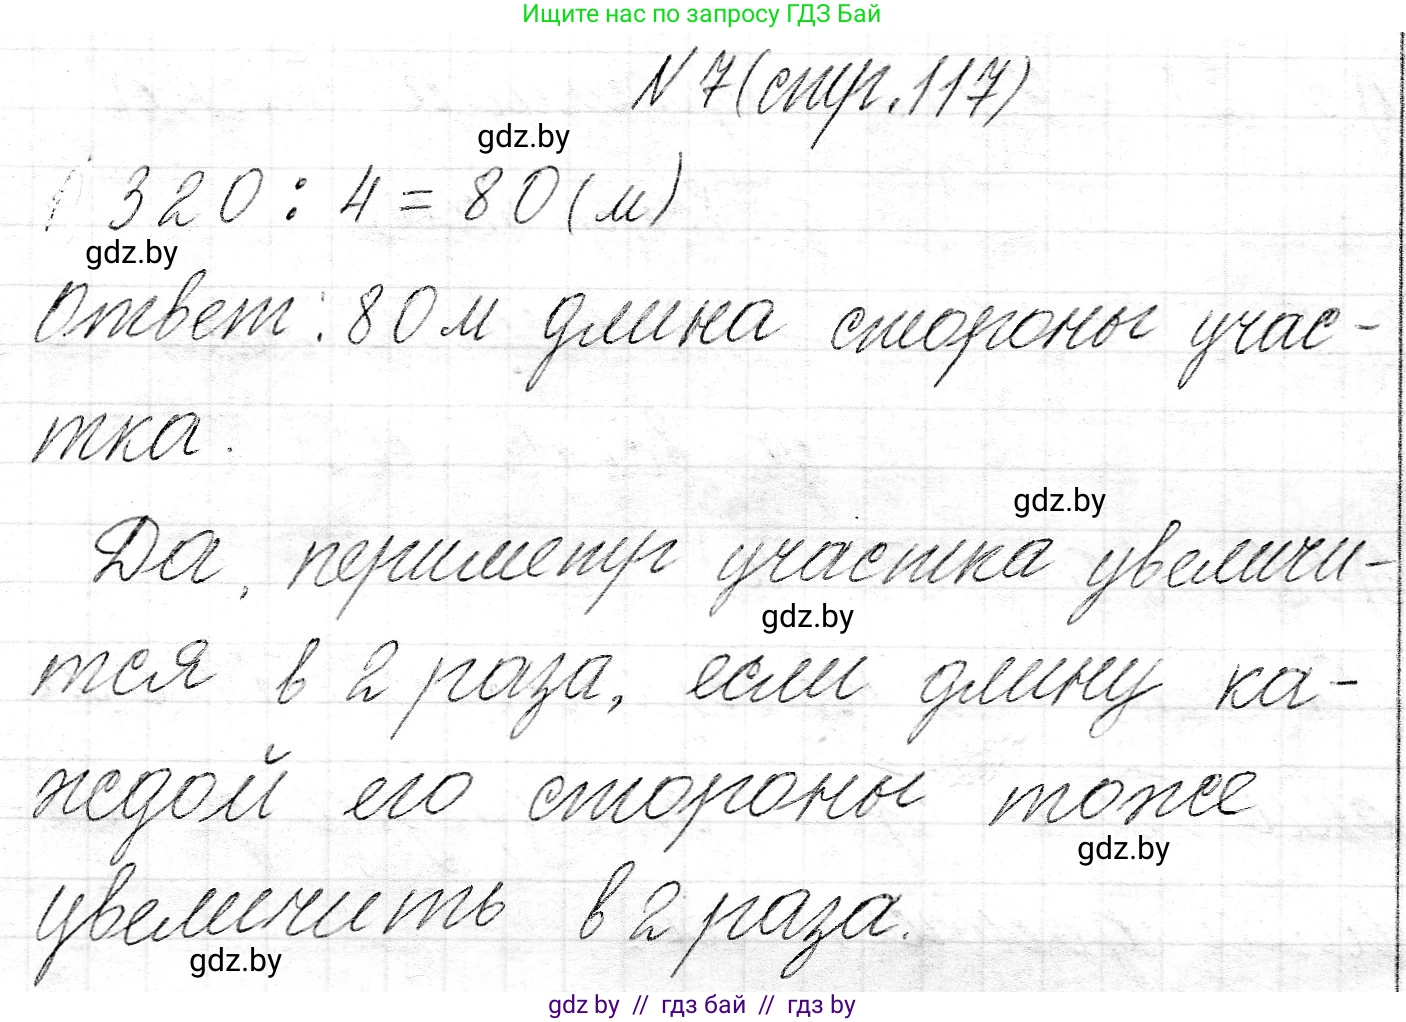 Ищите нас по запросу ГДЗ Бай
N 7 (стр. 117)
gdz.by
1) 320 : 4 = 80 (м)
gdz.by
Ответ: 80 м длина стороны учас-
тка.
gdz.by
Да, периметр участка увеличи-
gdz.by
тся в 2 раза, если длину ка-
ждой его стороны тоже
gdz.by
увеличить в 2 раза.
gdz.by
gdz by // гдз бай // гдз by